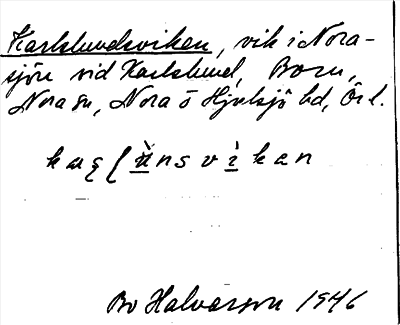 Karlslundsviken, vik i Nora-
sjön vid Karlslund, Born,
Nora sn, Nora o Hjulsjö bd, Ör l.
kaʂʃʉ̀nsvìkan
Bo Halvarson 1946